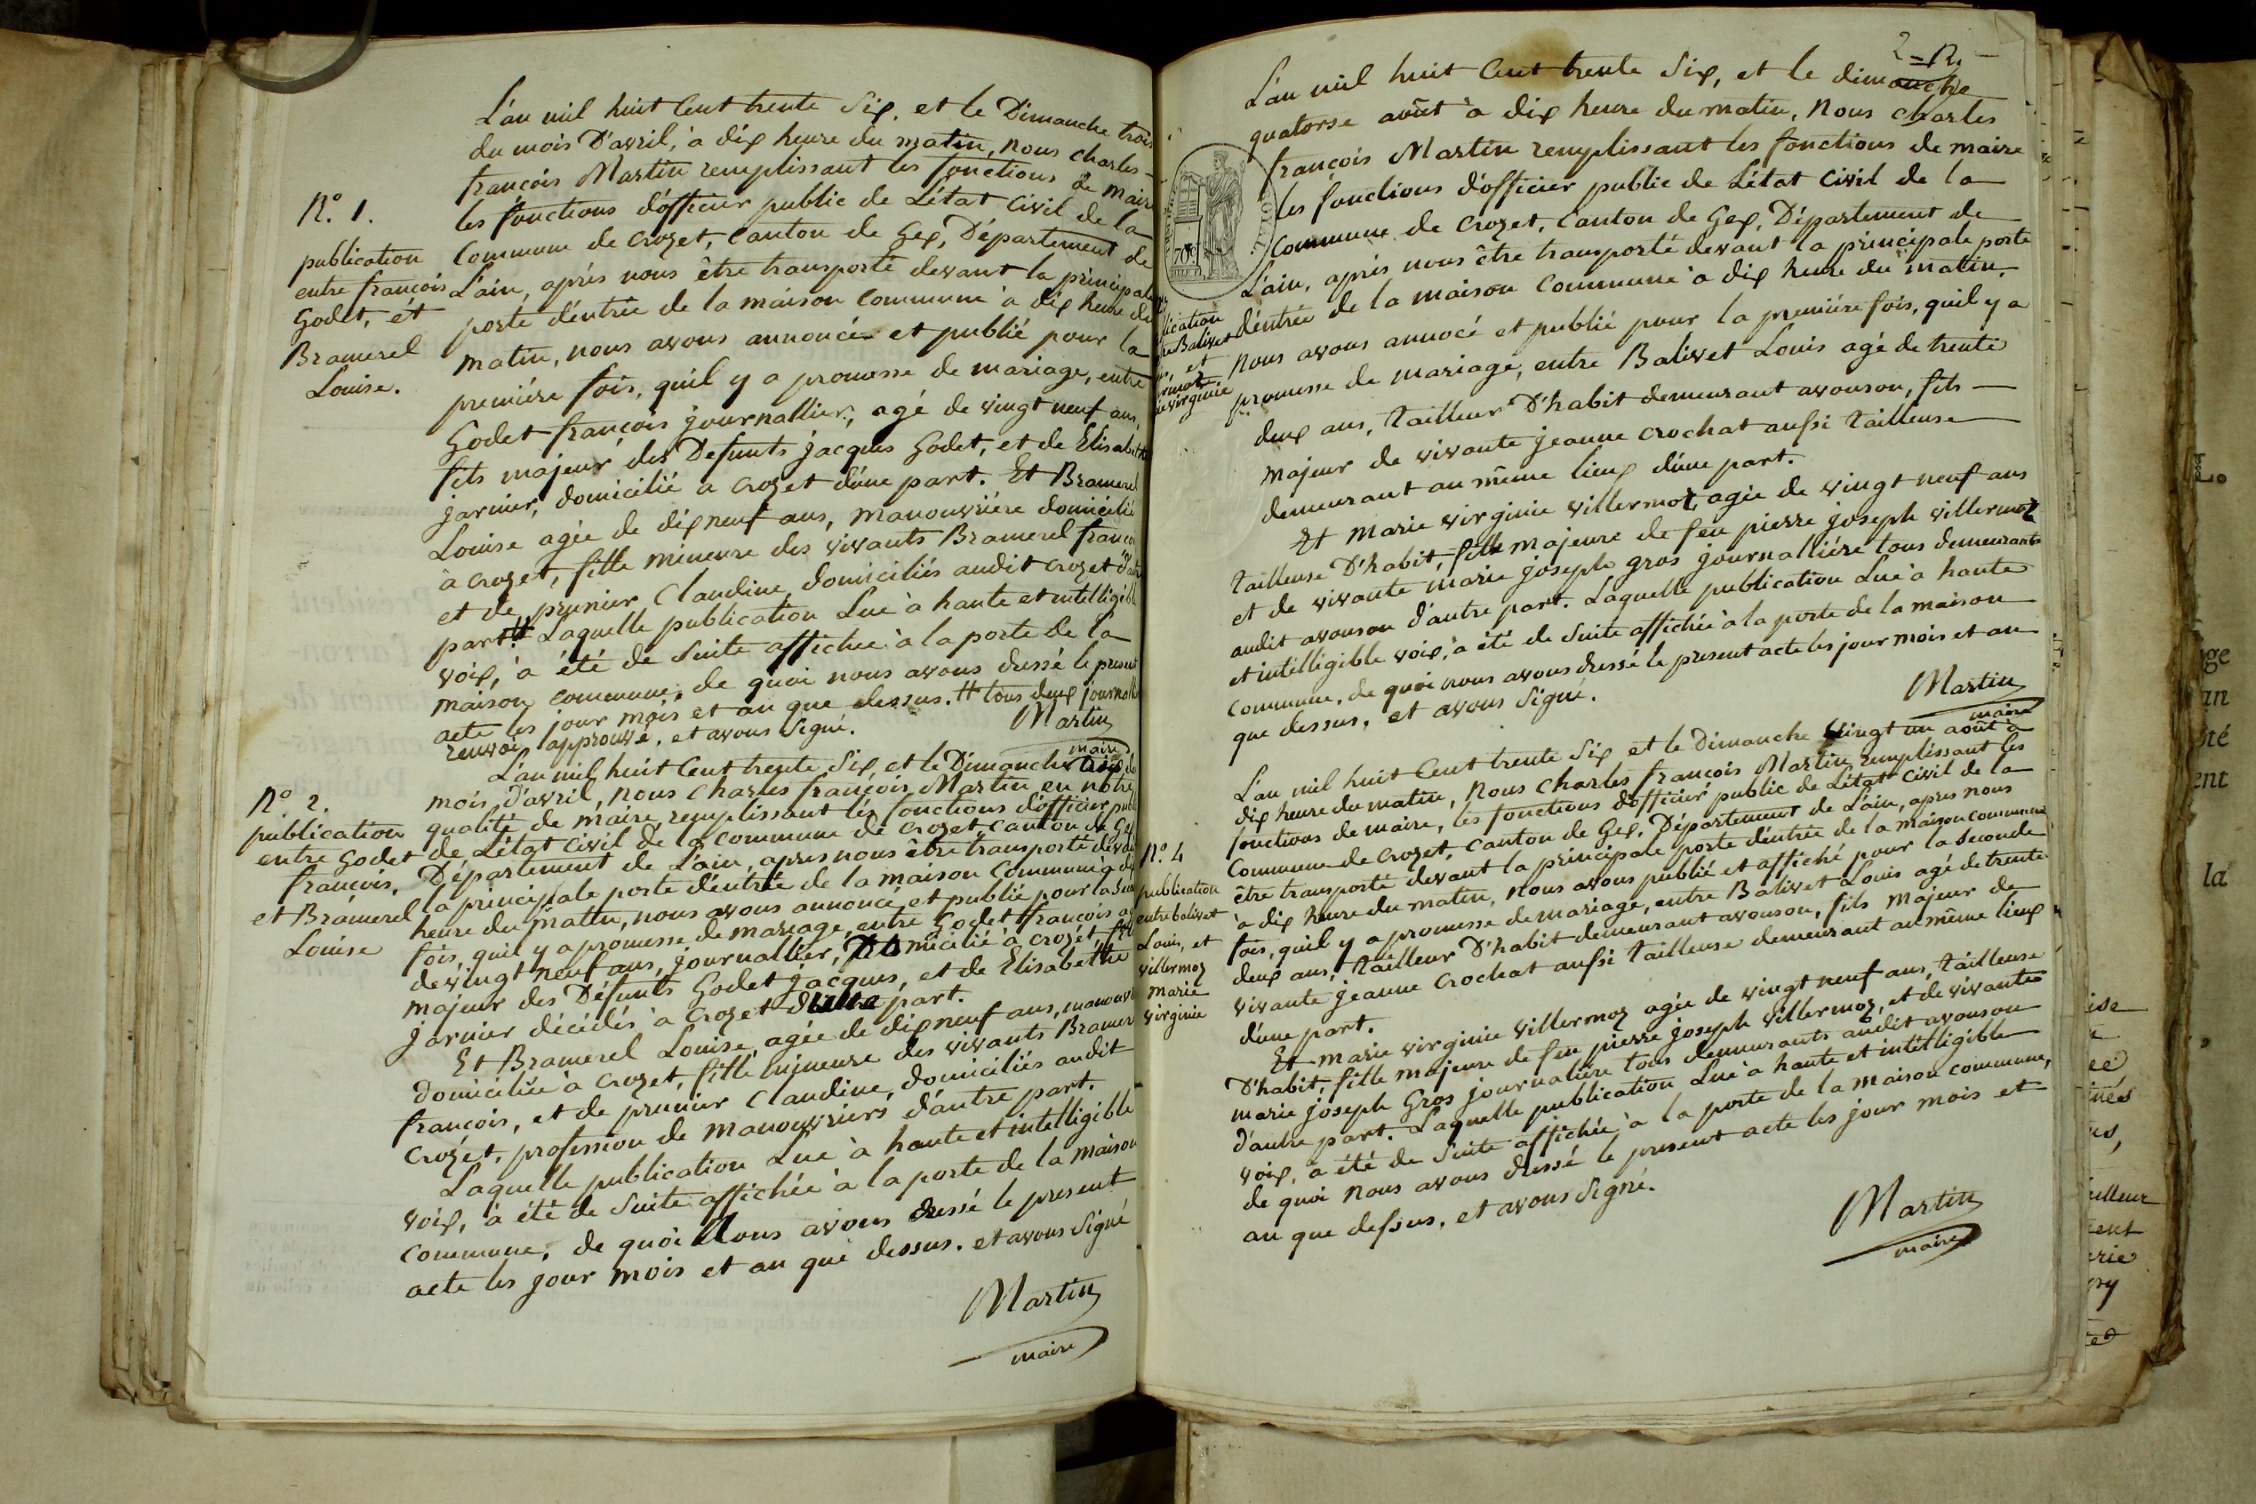 N.° 1.
publication
entre françois
Godet, ét
Bramerel
Louise.
L'an mil huit Cent trente Six, et le Dimanche trois
du mois D'avril, à dix heure du matin, nous charles
françois Martin remplissant les fonctions de Maire
les fonctions d'officier public de L'état Civil de la
Commune de Crozet, Canton de Gex, Département de
L'ain, après nous être transporté devant la principale
porte d'entrée de la maison Commune à dix heure du
matin, nous avons annoncé et publié pour la
première fois, qu'il y a promesse de mariage, entre
Godet françois journallier, agé de vingt neuf ans,
fils majeur des Defunts jacques Godet, et de Elisabeth
jarnier, domicilié a crozet d'une part. Et Bramerel
Louise agée de dix neuf ans, manouvrière domiciliée
à crozet, fille mineure des vivants Bramerel françois
et de prunier Claudine, domiciliés audit crozet d'autre
part. # Laquelle publication Lue à haute et intelligible
voix, à été de suite affichée à la porte de la
maison commune, de quoi nous avons dressé le present
acte les jour mois et an que dessus. # tous deux journalliers
renvoi approuvé, et avons Signé.
Martin
maire
N° 2.
publication
entre Godet
françois,
et Bramerel
Louise
L'an mil huit Cent trente Six, et le Dimanche dix du
mois d'avril, nous Charles françois Martin en notre
qualité de maire, remplissant les fonctions d'officier public
de L'état Civil de la commune de Crozet, canton de Gex
Département de L'ain, apres nous être transporté devant
la principale porte d'entrée de la maison Commune à dix
heure du matin, nous avons annoncé et publié pour la seconde
fois, qu'il y a promesse de mariage, entre Godet françois agé
de vingt neuf ans, journallier, Domicilié à crozét fils
majeur des Défunts Godet jacques, et de Elisabethe
jarnier décédés à Crozet d'une part.
Et Bramerel Louise agée de dix neuf ans, manouvrière
domiciliée à crozet, fille mineure des vivants Bramerel
françois, et de prunier Claudine, domiciliés audit
Crozét, profession de manouvriers d'autre part.
Laquelle publication Lue à haute et intelligible
voix, à été de suite affichée à la porte de la maison
commune, de quoi Nous avons dressé le present
acte les jour mois et an que dessus. et avons signé
Martin
maire
2 = R.
L'an mil huit Cent trente Six, et le dimanche
quatorse août à dix heure du matin, Nous charles
françois Martin remplissant les fonctions de maire
les fonctions d'officier public de L'état Civil de la
Commune de Crozet, Canton de Gex, Département de
L'ain, après nous être transporté devant la principale porte
d'entrée de la maison Commune à dix heure du matin
Nous avons annocé et publié pour la première fois, qu'il y a
promesse de mariage, entre Balivet Louis agé de trente
deux ans, tailleur D'habit demeurant avouson, fils
majeur de vivante jeanne crochat aussi tailleuse
demeurant au même lieux d'une part.
Et Marie virginie villermoz, agée de vingt neuf ans
tailleuse D'habit, fille majeure de feu pierre joseph villermoz
et de vivante marie joseph gros journallière tous demeurants
audit avouson d'autre part. Laquelle publication Lue à haute
et intélligible voix, à été de suite affichée à la porte de la maison
commune, de quoi nous avons dressé le present acte les jour mois et an
que dessus, et avons Signé.
Martin
maire
70c
lication
Balivet
et
virginie
N°. 4
publication
entre balivet
Louis, et
villermoz
marie
virginie
L'an mil huit Cent trente Six et le Dimanche vingt un août à
dix heure du matin, Nous Charles françois Martin remplissant les
fonctions de maire, les fonctions d'officier public de L'état Civil de la
Commune de Crozet, Canton de Gex, Département de L'ain, apres nous
être transporté devant la principale porte d'entrée de la maison commune
à dix heure du matin, nous avons publié et affiché pour la seconde
fois, qu'il y a promesse de mariage, entre Balivet Louis agé de trente
deux ans, tailleur D'habit demeurant avouson, fils majeur de
vivante jeanne Crochat aussi tailleuse demeurant au même lieux
d'une part.
Et marie virginie villermoz agée de vingt neuf ans, tailleuse
D'habit, fille majeure de feu pierre joseph villermoz, et de vivante
marie joseph Gros journalière tous demeurants audit avouson
d'autre part. Laquelle publication Lue à haute et intélligible
voix, à été de suite affichée à la porte de la maison commune,
de quoi nous avons dressé le present acte les jour mois et
an que dessus, et avons Signé.
Martin
maire